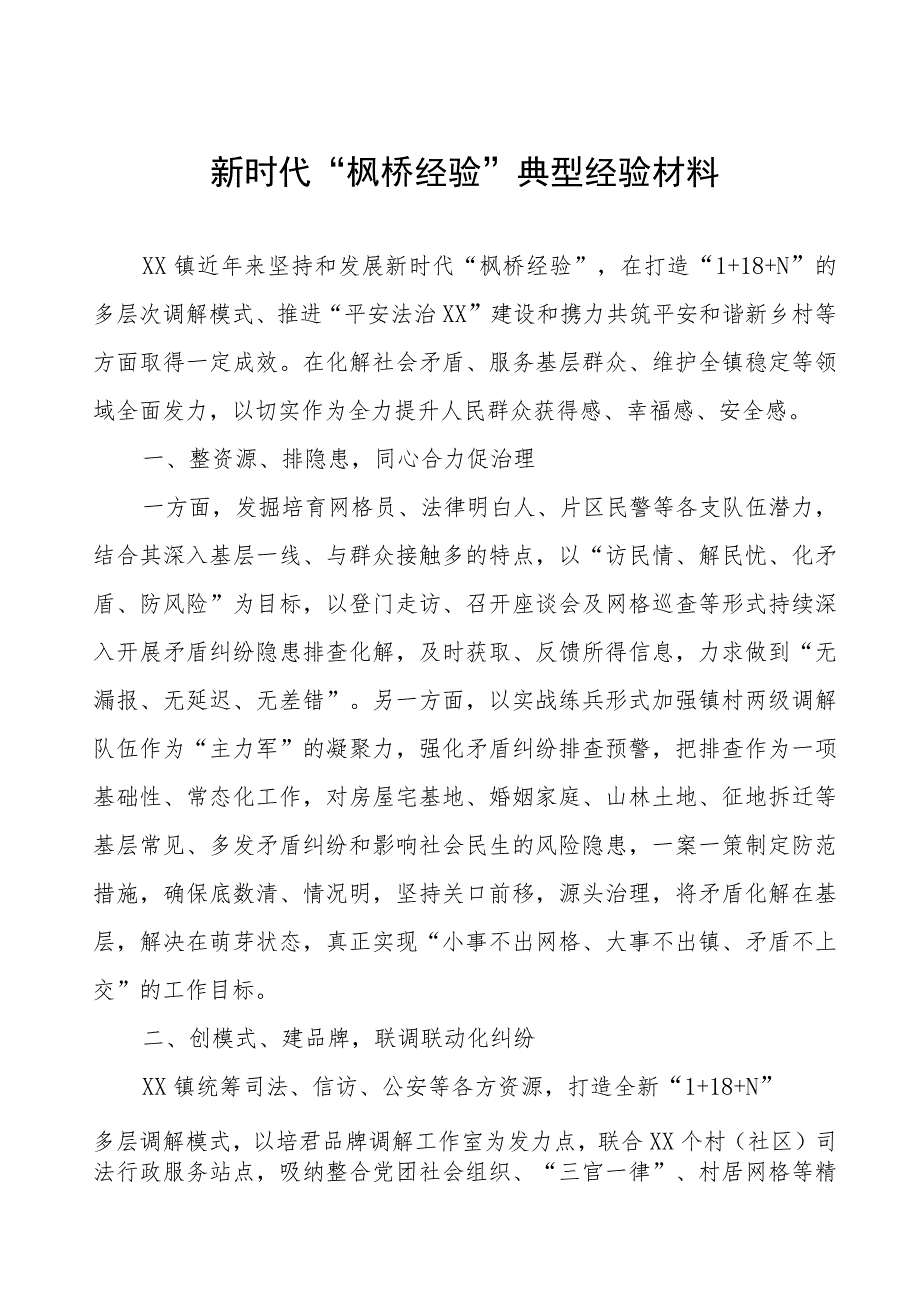 新时代“枫桥经验”典型经验材料
XX镇近年来坚持和发展新时代“枫桥经验”，在打造“1+18+N”的
多层次调解模式、推进“平安法治XX”建设和携力共筑平安和谐新乡村等
方面取得一定成效。在化解社会矛盾、服务基层群众、维护全镇稳定等领
域全面发力，以切实作为全力提升人民群众获得感、幸福感、安全感。
一、整资源、排隐患，同心合力促治理
一方面，发掘培育网格员、法律明白人、片区民警等各支队伍潜力，
结合其深入基层一线、与群众接触多的特点，以“访民情、解民忧、化矛
盾、防风险”为目标，以登门走访、召开座谈会及网格巡查等形式持续深
入开展矛盾纠纷隐患排查化解，及时获取、反馈所得信息，力求做到“无
漏报、无延迟、无差错”。另一方面，以实战练兵形式加强镇村两级调解
队伍作为“主力军”的凝聚力，强化矛盾纠纷排查预警，把排查作为一项
基础性、常态化工作，对房屋宅基地、婚姻家庭、山林土地、征地拆迁等
基层常见、多发矛盾纠纷和影响社会民生的风险隐患，一案一策制定防范
措施，确保底数清、情况明，坚持关口前移，源头治理，将矛盾化解在基
层，解决在萌芽状态，真正实现“小事不出网格、大事不出镇、矛盾不上
交”的工作目标。
二、创模式、建品牌，联调联动化纠纷
XX镇统筹司法、信访、公安等各方资源，打造全新“1+18+N”
多层调解模式，以培君品牌调解工作室为发力点，联合XX个村（社区）司
法行政服务站点，吸纳整合党团社会组织、“三官一律”、村居网格等精